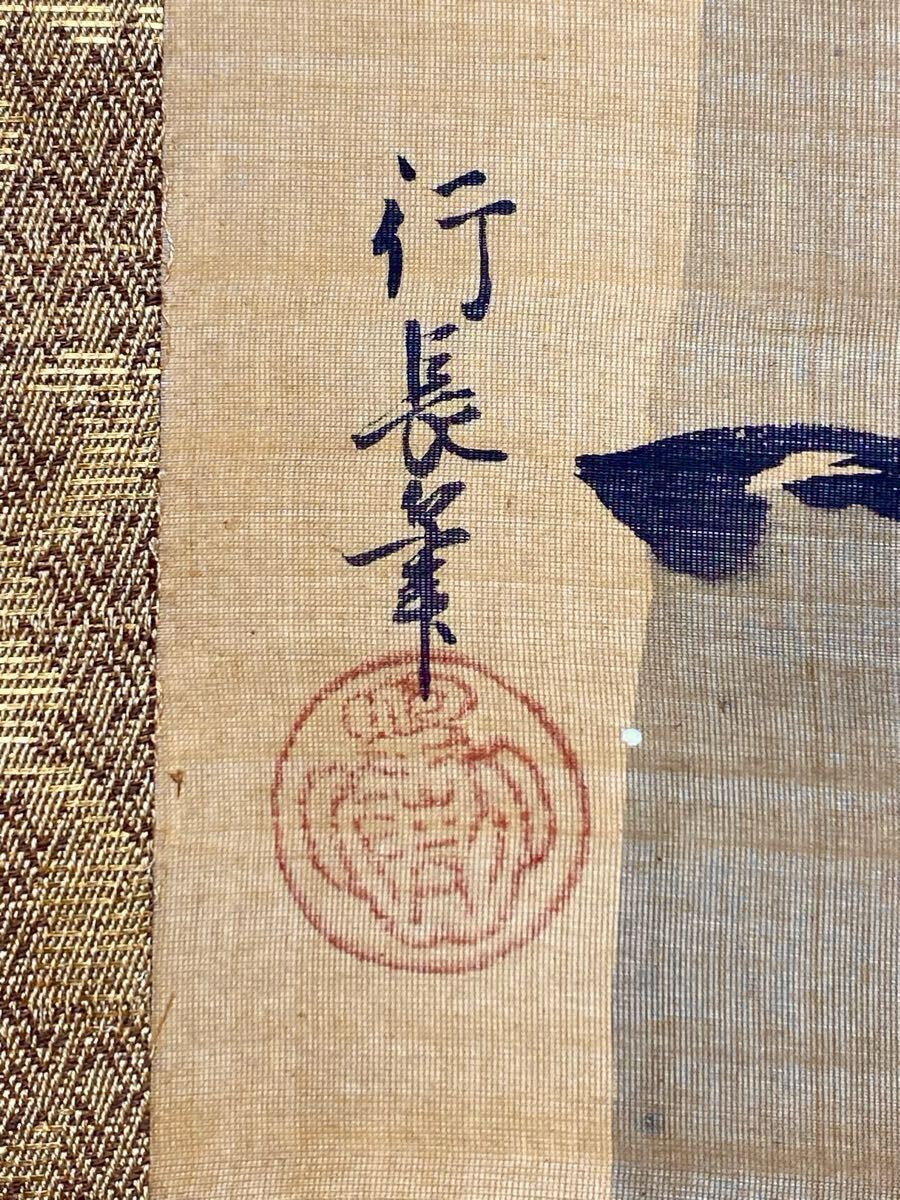 行長筆